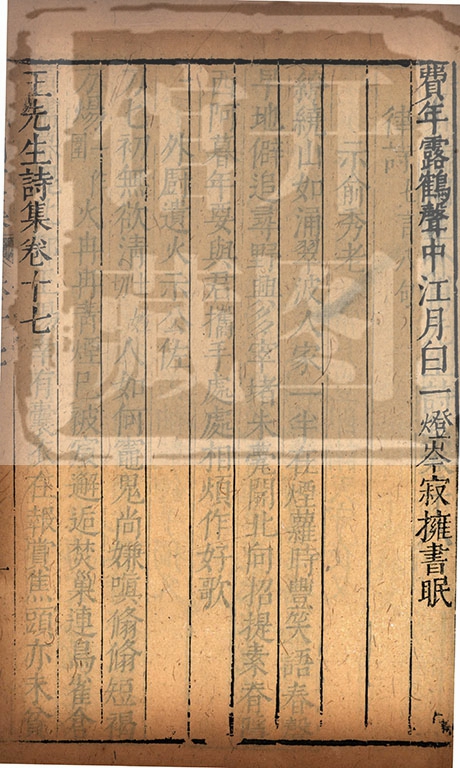 費年露鶴聲中江月白一燈岑寂擁書眠
律詩
示俞秀老
繚繞山如涌翠波人家一半在煙蘿時豐笑語春聲
早地僻追尋野興多窣堵朱甍開北向招提素脊
西阿暮年要與君攜手處處相煩作好歌
外廚遺火示公佐
初無欲清人如何竈鬼尚嫌嗔翛翛短褐
方煬圍火冉冉青煙已被宸邂逅焚巢連鳥雀倉
有囊衣在報賞焦頭亦未貧
王先生詩集卷十七